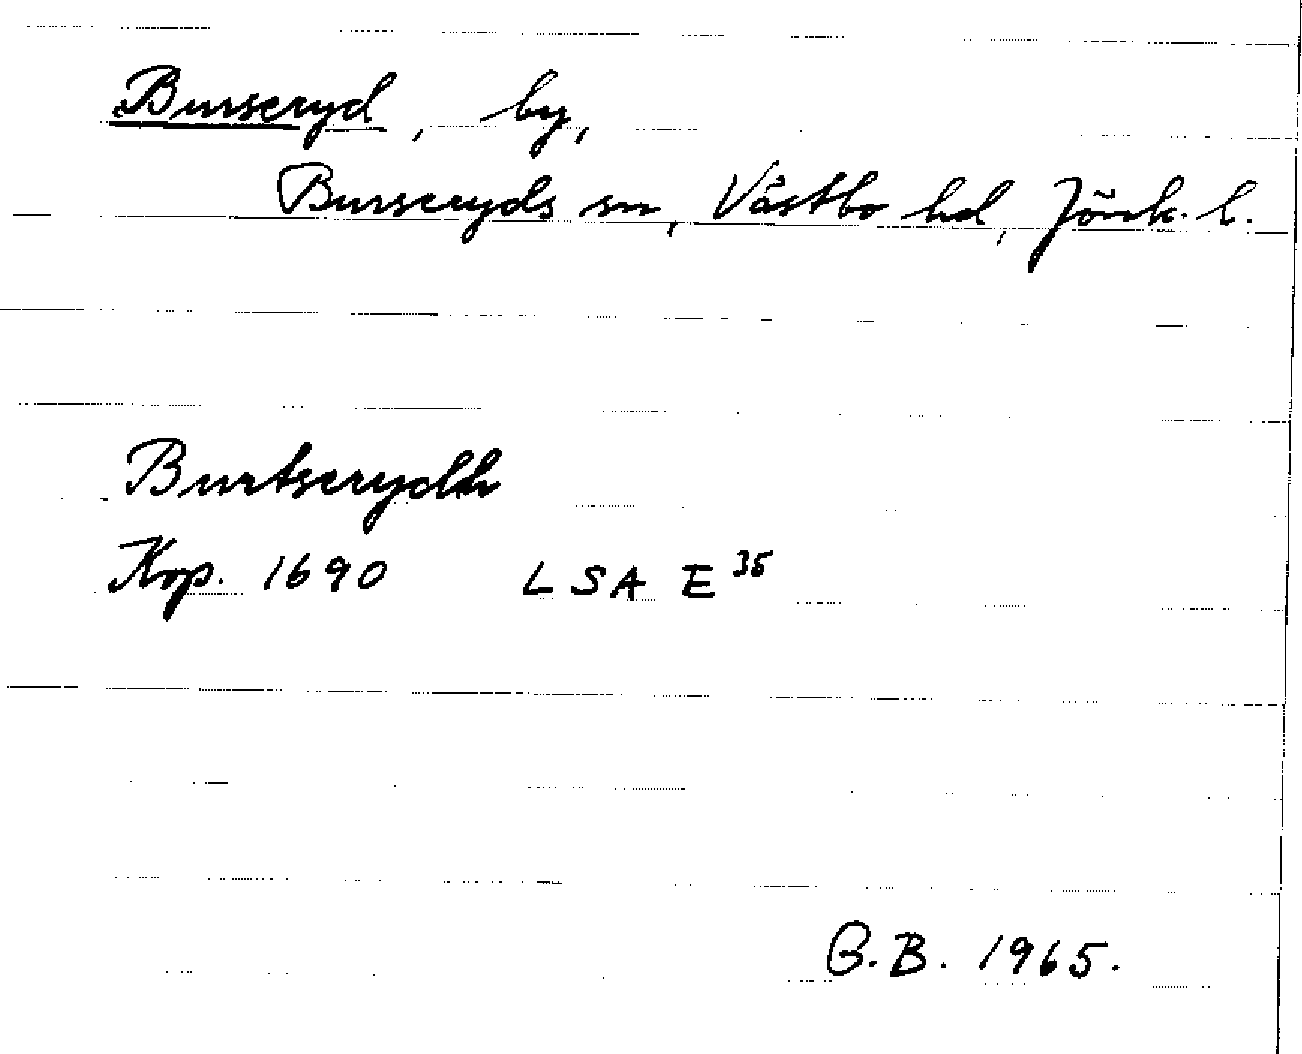 Burseryd, by,
Burseryds sn, Västbo hd, Jönk. l.
Burtserydh
Kop. 1690 LSA E 35
G.B. 1965.